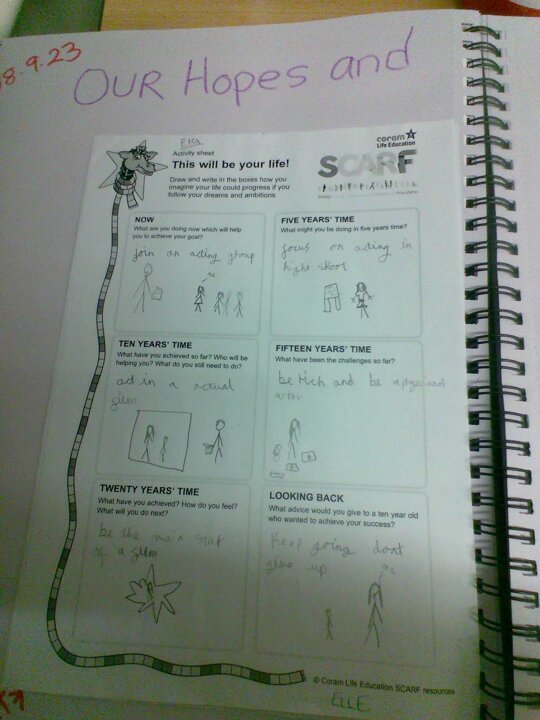 8.9.23
OUR Hopes and
Activity sheet
This will be your life!
Draw and write in the boxes how you
imagine your life could progress if you
follow your dreams and ambitions.
coram
Life Education
SCARF
Safety
NOW
What are you doing now which will help
you to achieve your goal?
Join an acting group
me
FIVE YEARS' TIME
What might you be doing in five years time?
focus on acting in
hight skool
TEN YEARS' TIME
What have you achieved so far? Who will be
helping you? What do you still need to do?
act in a actual
film
FIFTEEN YEARS' TIME
What have been the challenges so far?
be rich and be a
actor
TWENTY YEARS' TIME
What have you achieved? How do you feel?
What will you do next?
be the main star
of a film
LOOKING BACK
What advice would you give to a ten year old
who wanted to achieve your success?
Keep going dont
give up
me
© Coram Life Education SCARF resources
ELLE